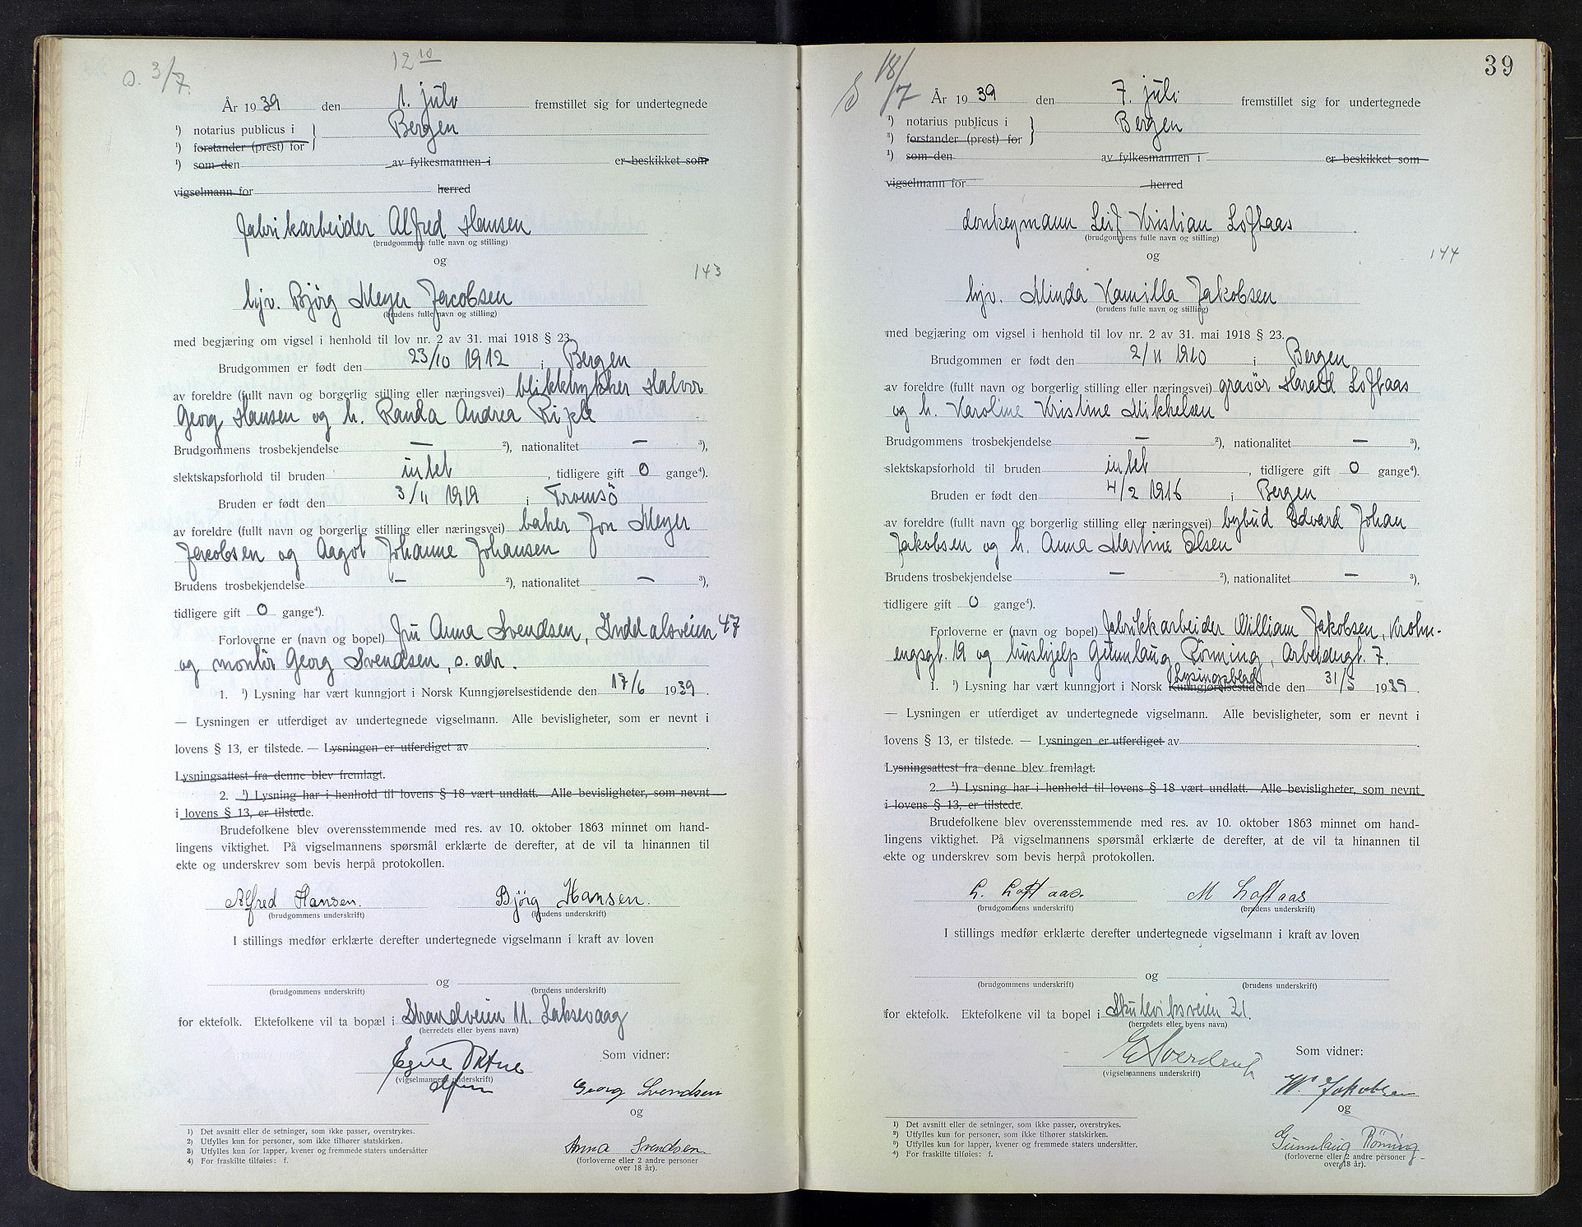 D. 3/7.
12 10
År 1939 den 1. juli fremstillet sig for undertegnede
¹) notarius publicus i Bergen
¹) forstander (prest) for
¹) som den av fylkesmannen i er beskikket som
vigselmann for herred
Fabrikarbeider Alfred Hansen
(brudgommens fulle navn og stilling)
og
143
hjv. Bjørg Meyer Jacobsen
(brudens fulle navn og stilling)
med begjæring om vigsel i henhold til lov nr. 2 av 31. mai 1918 § 23.
Brudgommen er født den 23/10 1912 i Bergen
av foreldre (fullt navn og borgerlig stilling eller næringsvei) blikktrykker Halvor
Georg Hansen og h. Randa Andrea
Brudgommens trosbekjendelse — ²), nationalitet — ³),
slektskapsforhold til bruden intet, tidligere gift 0 gange⁴).
Bruden er født den 3/11 1919 i Tromsö
av foreldre (fullt navn og borgerlig stilling eller næringsvei) baker Jon Meyer
Jacobsen og Aagot Johanne Johansen
Brudens trosbekjendelse — ²), nationalitet — ³),
tidligere gift 0 gange⁴).
Forloverne er (navn og bopel) Fru Anna Svendsen, Inndalsveien 47
og montör Georg Svendsen, s. adr.
1. ¹) Lysning har vært kunngjort i Norsk Kunngjørelsestidende den 17/6 1939.
— Lysningen er utferdiget av undertegnede vigselmann. Alle bevisligheter, som er nevnt i
lovens § 13, er tilstede. — Lysningen er utferdiget av
Lysningsattest fra denne blev fremlagt.
2. ¹) Lysning har i henhold til lovens § 18 vært undlatt. Alle bevisligheter, som nevnt
i lovens § 13, er tilstede.
Brudefolkene blev overensstemmende med res. av 10. oktober 1863 minnet om hand-
lingens viktighet. På vigselmannens spørsmål erklærte de derefter, at de vil ta hinannen til
ekte og underskrev som bevis herpå protokollen.
Alfred Hansen. Bjørg Hansen.
(brudgommens underskrift) (brudens underskrift)
I stillings medfør erklærte derefter undertegnede vigselmann i kraft av loven
og
(brudgommens underskrift) (brudens underskrift)
for ektefolk. Ektefolkene vil ta bopæl i Strandveien 11. Laksevaag
(herredets eller byens navn)
Som vidner:
(vigselmannens underskrift)
Georg Svendsen
og
Anna Svendsen.
(forloverne eller 2 andre personer
over 18 år).
1) Det avsnitt eller de setninger, som ikke passer, overstrykes.
2) Utfylles kun for personer, som ikke tilhører statskirken.
3) Utfylles kun for lapper, kvener og fremmede staters undersåtter
4) For fraskilte tilføies: f.
39
18/7
År 1939 den 7. juli fremstillet sig for undertegnede
¹) notarius publicus i Bergen
¹) forstander (prest) for
¹) som den av fylkesmannen i er beskikket som
vigselmann for herred
donkeymann Leif Kristian Loftaas
(brudgommens fulle navn og stilling)
og
144
hjv. Minda Kamilla Jakobsen
(brudens fulle navn og stilling)
med begjæring om vigsel i henhold til lov nr. 2 av 31. mai 1918 § 23.
Brudgommen er født den 2/11 1910 i Bergen
av foreldre (fullt navn og borgerlig stilling eller næringsvei) gravör Harald Loftaas
og h. Karoline Kristine Mikkelsen
Brudgommens trosbekjendelse — ²), nationalitet — ³),
slektskapsforhold til bruden intet, tidligere gift 0 gange⁴).
Bruden er født den 4/2 1916 i Bergen
av foreldre (fullt navn og borgerlig stilling eller næringsvei) bybud Edvard Johan
Jakobsen og h. Anna Martine Olsen
Brudens trosbekjendelse — ²), nationalitet — ³),
tidligere gift 0 gange⁴).
Forloverne er (navn og bopel) fabrikkarbeider William Jakobsen, Krohn-
engsgt. 19 og hushjelp Gunnlaug Rönning, Arbeidergt. 7.
Lysingsblad
1. ¹) Lysning har vært kunngjort i Norsk Kunngjørelsestidende den 31/5 1939
— Lysningen er utferdiget av undertegnede vigselmann. Alle bevisligheter, som er nevnt i
lovens § 13, er tilstede. — Lysningen er utferdiget av
Lysningsattest fra denne blev fremlagt.
2. ¹) Lysning har i henhold til lovens § 18 vært undlatt. Alle bevisligheter, som nevnt
i lovens § 13, er tilstede.
Brudefolkene blev overensstemmende med res. av 10. oktober 1863 minnet om hand-
lingens viktighet. På vigselmannens spørsmål erklærte de derefter, at de vil ta hinannen til
ekte og underskrev som bevis herpå protokollen.
L. Loftaas. M Loftaas
(brudgommens underskrift) (brudens underskrift)
I stillings medfør erklærte derefter undertegnede vigselmann i kraft av loven
og
(brudgommens underskrift) (brudens underskrift)
for ektefolk. Ektefolkene vil ta bopel i Skuteviksveien 21.
(herredets eller byens navn)
E Sverdrup Som vidner:
(vigselmannens underskrift)
W. Jakobsen
og
Gunnlaug Rönning
(forloverne eller 2 andre personer
over 18 år).
¹) Det avsnitt eller de setninger, som ikke passer, overstrykes.
²) Utfylles kun for personer, som ikke tilhører statskirken.
³) Utfylles kun for lapper, kvener og fremmede staters undersåtter.
⁴) For fraskilte tilføies: f.